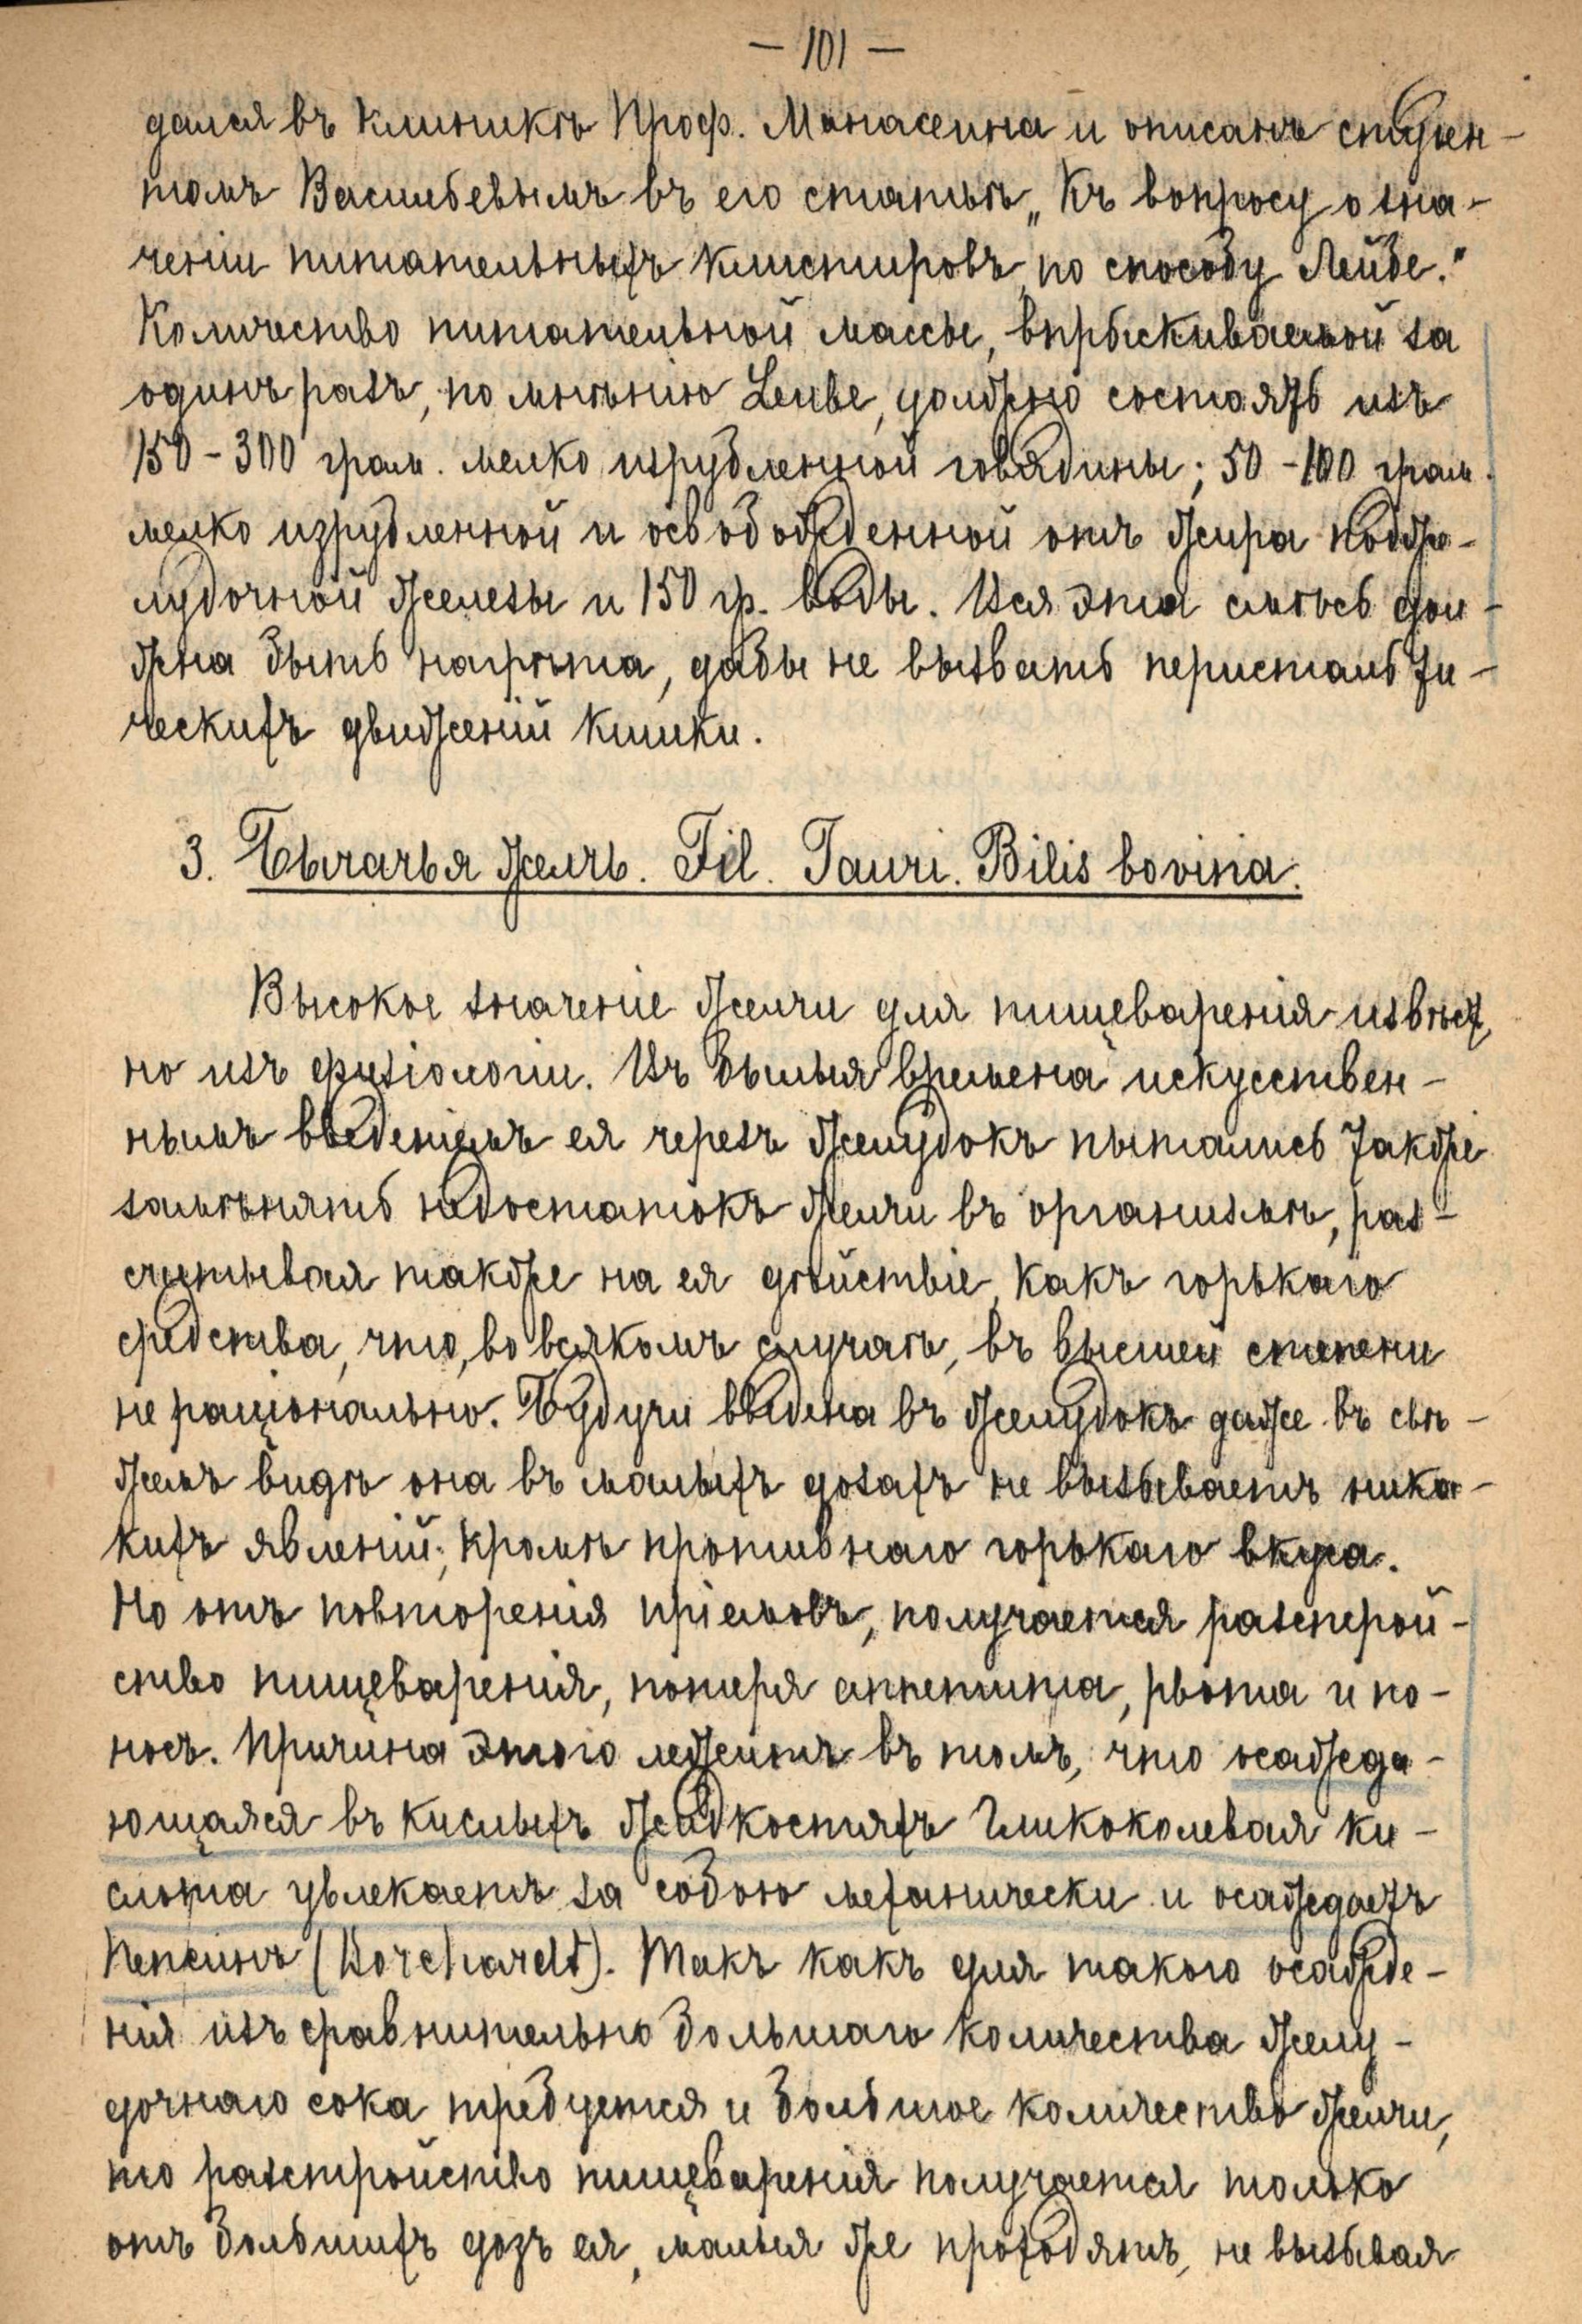 — 101 —
дался въ клиникѣ Проф. Манассеина и описанъ студен-
томъ Васильевымъ въ его статьѣ „Къ вопросу о зна-
ченіи питательныхъ клистировъ по способу Лейбе."
Количество питательной массы, впрыскиваемой за
одинъ разъ, по мнѣнію Leube, должно состоять изъ
150 – 300 грам. мелко изрубленной говядины; 50 – 100 грам.
мелко изрубленной и освобожденной отъ жира поджe-
лудочной железы и 150 гр. воды. Вся эта смѣсь дол-
жна быть нагрѣта, дабы не вызвать перистальти-
ческихъ движеній кишки.
3. Бычачья желчь. Fel. Tauri. Bilis bovina.
Высокое значеніе желчи для пищеваренія извѣст-
но изъ физіологіи. Въ былыя времена искусствен-
нымъ введеніемъ ея черезъ желудокъ пытались также
замѣнять недостатокъ желчи въ организмѣ, раз-
считывая также на ея дѣйствіе, какъ горькаго
средства, что, во всякомъ случаѣ, въ высшей степени
не раціонально. Будучи введена въ желудокъ даже въ свѣ-
жемъ видѣ она въ малыхъ дозахъ не вызываетъ ника-
кихъ явленій, кромѣ противнаго горькаго вкуса.
Но отъ повторенія пріемовъ, получается разстрой-
ство пищеваренія, потеря аппетита, рвота и по-
носъ. Причина этого лежитъ въ томъ, что осажда-
ющаяся въ кислыхъ жидкостяхъ Гликоколевая ки-
слота увлекаетъ за собою механически и осаждаетъ
пепсинъ (Borchardt). Такъ какъ для такого осажде-
нія изъ сравнительно большаго количества желу-
дочнаго сока требуется и большое количество желчи,
то разстройство пищеваренія получается только
отъ большихъ дозъ ея, малыя же проходятъ, не вызывая